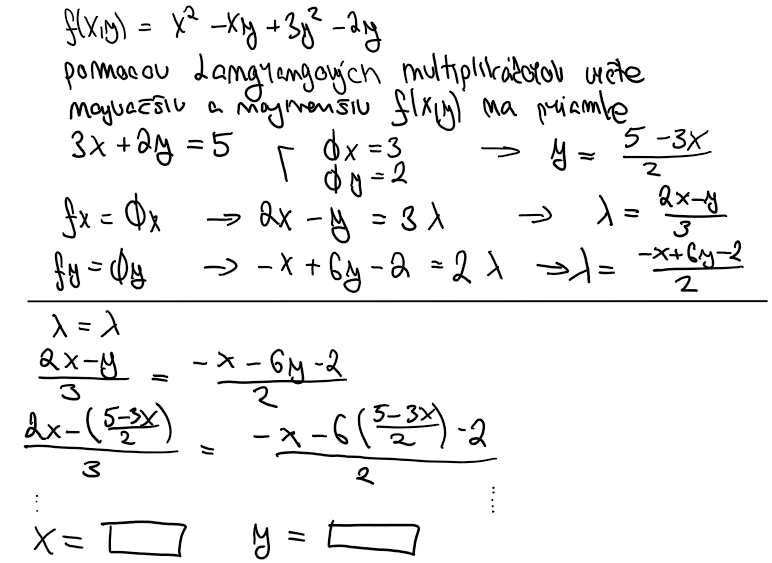 f(x,y) = x² - xy + 3y² - 2y
pomocou Langrangových multiplikátorov určte
najväčšiu a najmenšiu f(x,y) na priamke
3x + 2y = 5 ϕx = 3 → y = (5 - 3x)/2
ϕy = 2
fx = ϕx → 2x - y = 3λ → λ = (2x-y)/3
fy = ϕy → -x + 6y - 2 = 2λ → λ = (-x+6y-2)/2
λ = λ
(2x-y)/3 = (-x - 6y - 2)/2
(2x-((5-3x)/2))/3 = (-x - 6((5-3x)/2) - 2)/2
x = y =